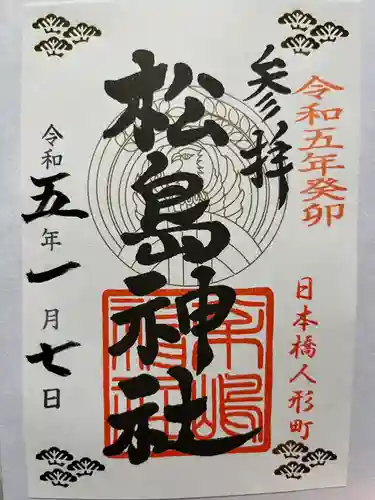 令和五年癸卯
日本橋人形町
参拝
松島神社
令和五年一月七日